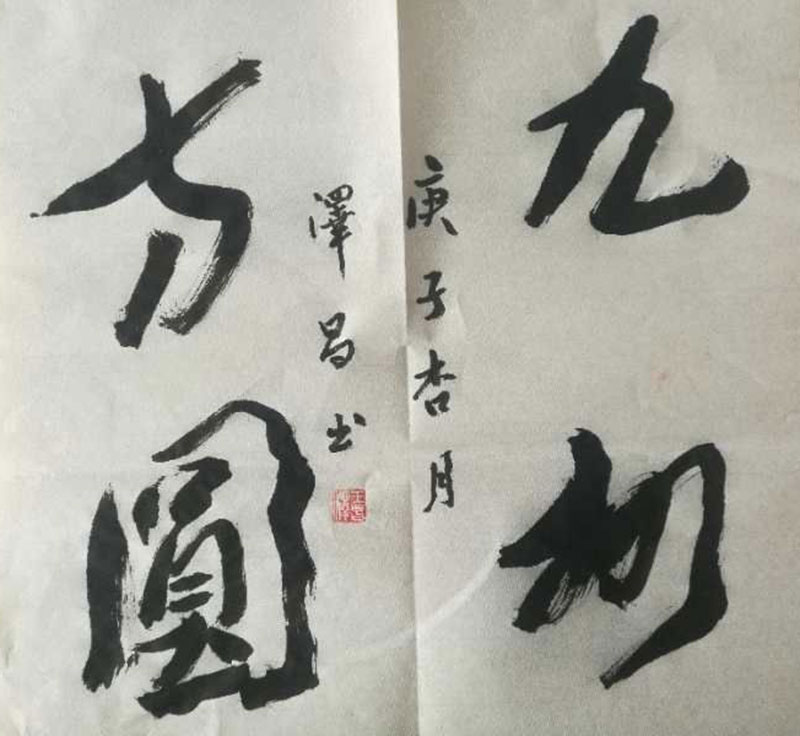 九州
方圓
庚子杏月
澤昌书